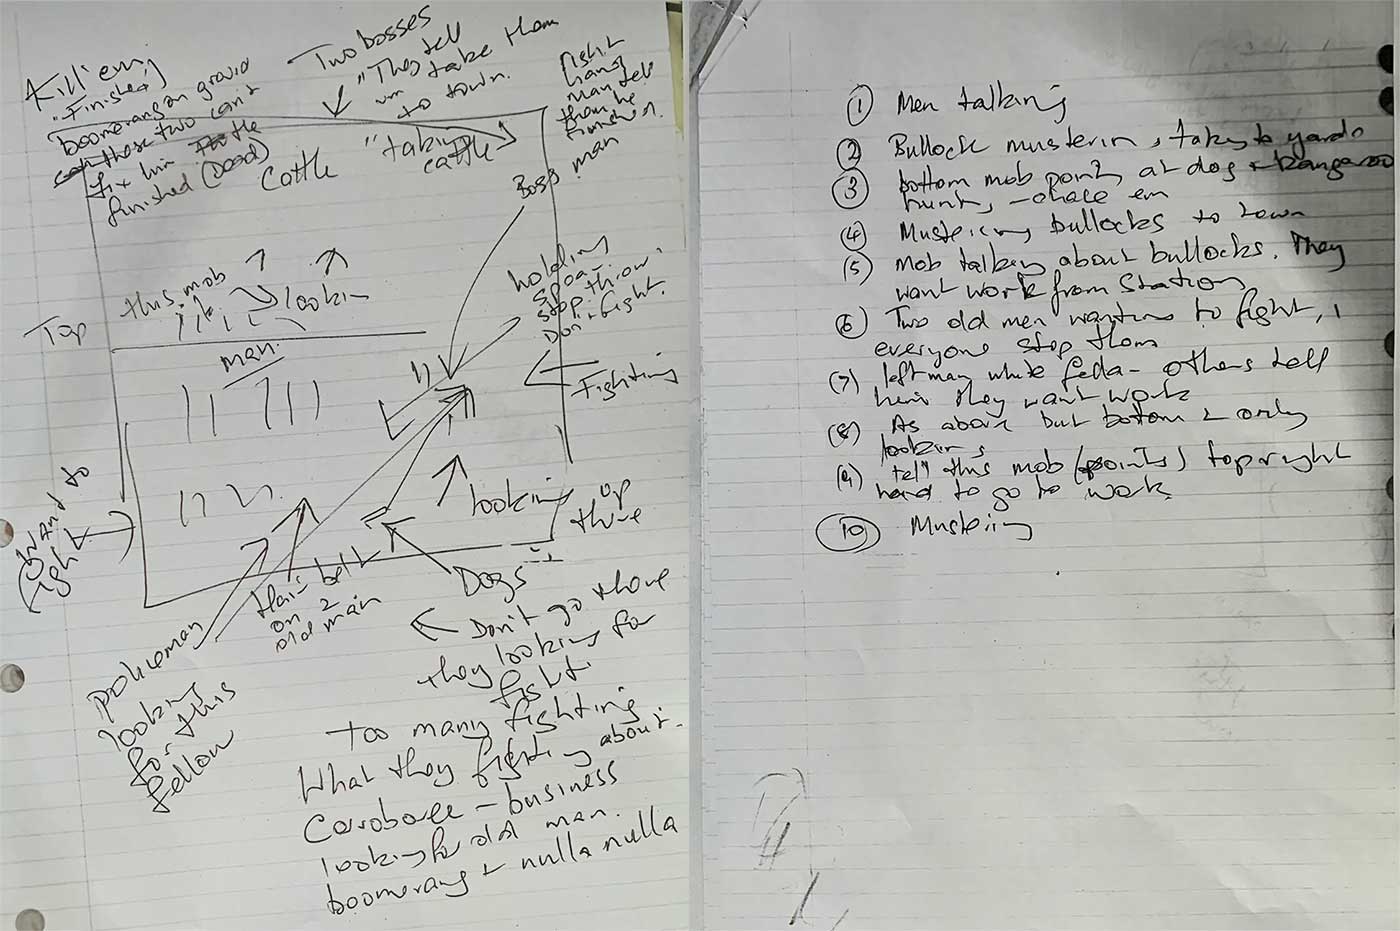 Kill'em
"Finished"
boomerang on ground
those two can't
fix him
finished (Dead)
Two bosses
"They tell
um take them
to town.
cattle
"taking
cattle"
right
hand
man tell
them he
finished.
Boss man
this mob
lookin
Top
man
holding
spear
stop throw.
Don't fight.
Fighting
looking up
there
Want to
fight
Hair belt
on 2
old man
Dogs
policeman
looking
for this
fellow
Don't go there
they looking for
fight.
Too many fighting
What they fighting about.
Corroboree - business
looking for old man.
boomerang + nulla nulla
① Men talking
② Bullock musterin, taking to yards
③ bottom mob pointing at dog + kangaroo
hunting, - chase em
④ Mustering bullocks to town
(5) Mob talking about bullocks. They
want work from Station
⑥ Two old men wanting to fight,
everyone stop them
(7) left man white fella - others tell
him they want work
(8) As above but bottom + only
looking
(9) tell this mob (points) top right
hand to go to work
⑩ Mustering